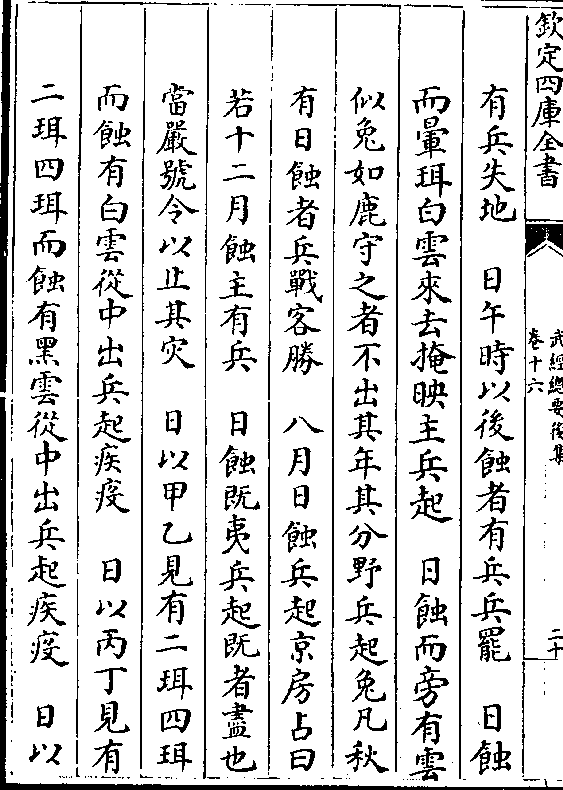 欽定四庫全書
武經總要後集
卷十六
二十
有兵失地　日午時以後蝕者有兵兵罷　日蝕
而暈珥白雲來去掩映主兵起　日蝕而旁有雲
似兔如鹿守之者不出其年其分野兵起兔凡秋
有日蝕者兵戰客勝　八月日蝕兵起京房占曰
若十二月蝕主有兵　日蝕既夷兵起既者盡也
當嚴號令以止其灾　日以甲乙見有二珥四珥
而蝕有白雲從中出兵起疾疫　日以丙丁見有
二珥四珥而蝕有黑雲從中出兵起疾疫　日以